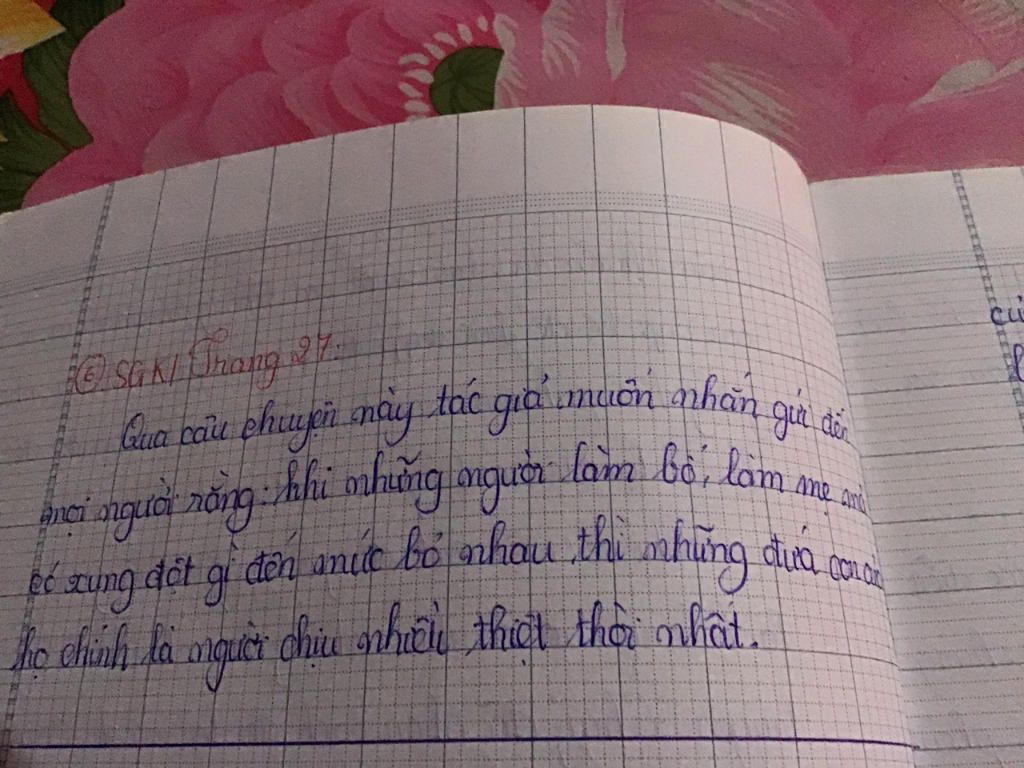 ⑥ SGK/ Trang 27.
Qua câu chuyện này tác giả muốn nhắn gửi đến
mọi người rằng: khi những người làm bố, làm mẹ mà
có xung đột gì đến mức bỏ nhau thì những đứa con
họ chính là người chịu nhiều thiệt thòi nhất.